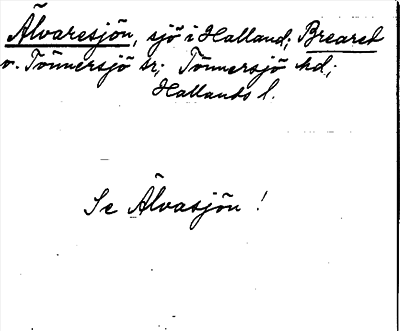 Älvaresjön, sjö i Halland; Breared
o. Tönnersjö sr; Tönnersjö hd;
Hallands l.
Se Älvasjön!